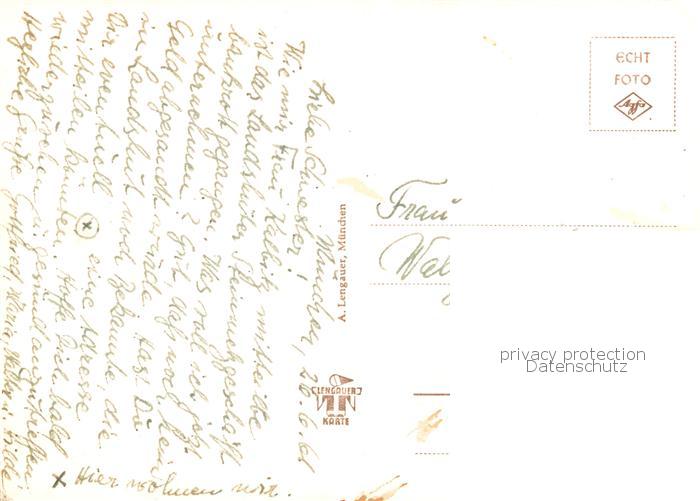 München, 20.6.61
Liebe Schwester!
Wie mir Frau Kalbitz mitteilte
ist das Landshuter Steinmetzgeschäft
bankrott gegangen. Was soll ich jetzt
unternehmen? Gut daß noch kein
Geld abgesandt wurde. Hast Du
in Landshut noch Bekannte, die
Dir eventuell eine Adresse
mitteilen könnten. Hoffe Dich bald
wieder gesund anzutreffen.
Herzliche Grüße Gottfried, Maria, Walter u. Hilde
x Hier wohnen wir.
A. Lengauer, München
LENGAUER
KARTE
ECHT
FOTO
Agfa
Frau
Wal
privacy protection
Datenschutz